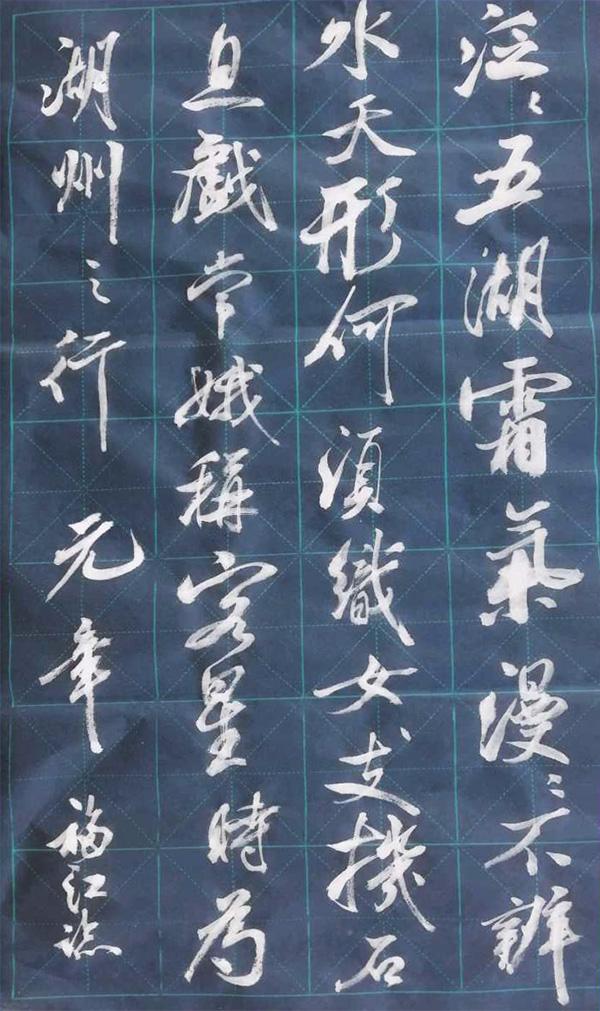 泛〻五湖霜氣漫〻不辨
水天形何須織女支機石
且戲常娥稱客星時為
湖州之行 元章 福